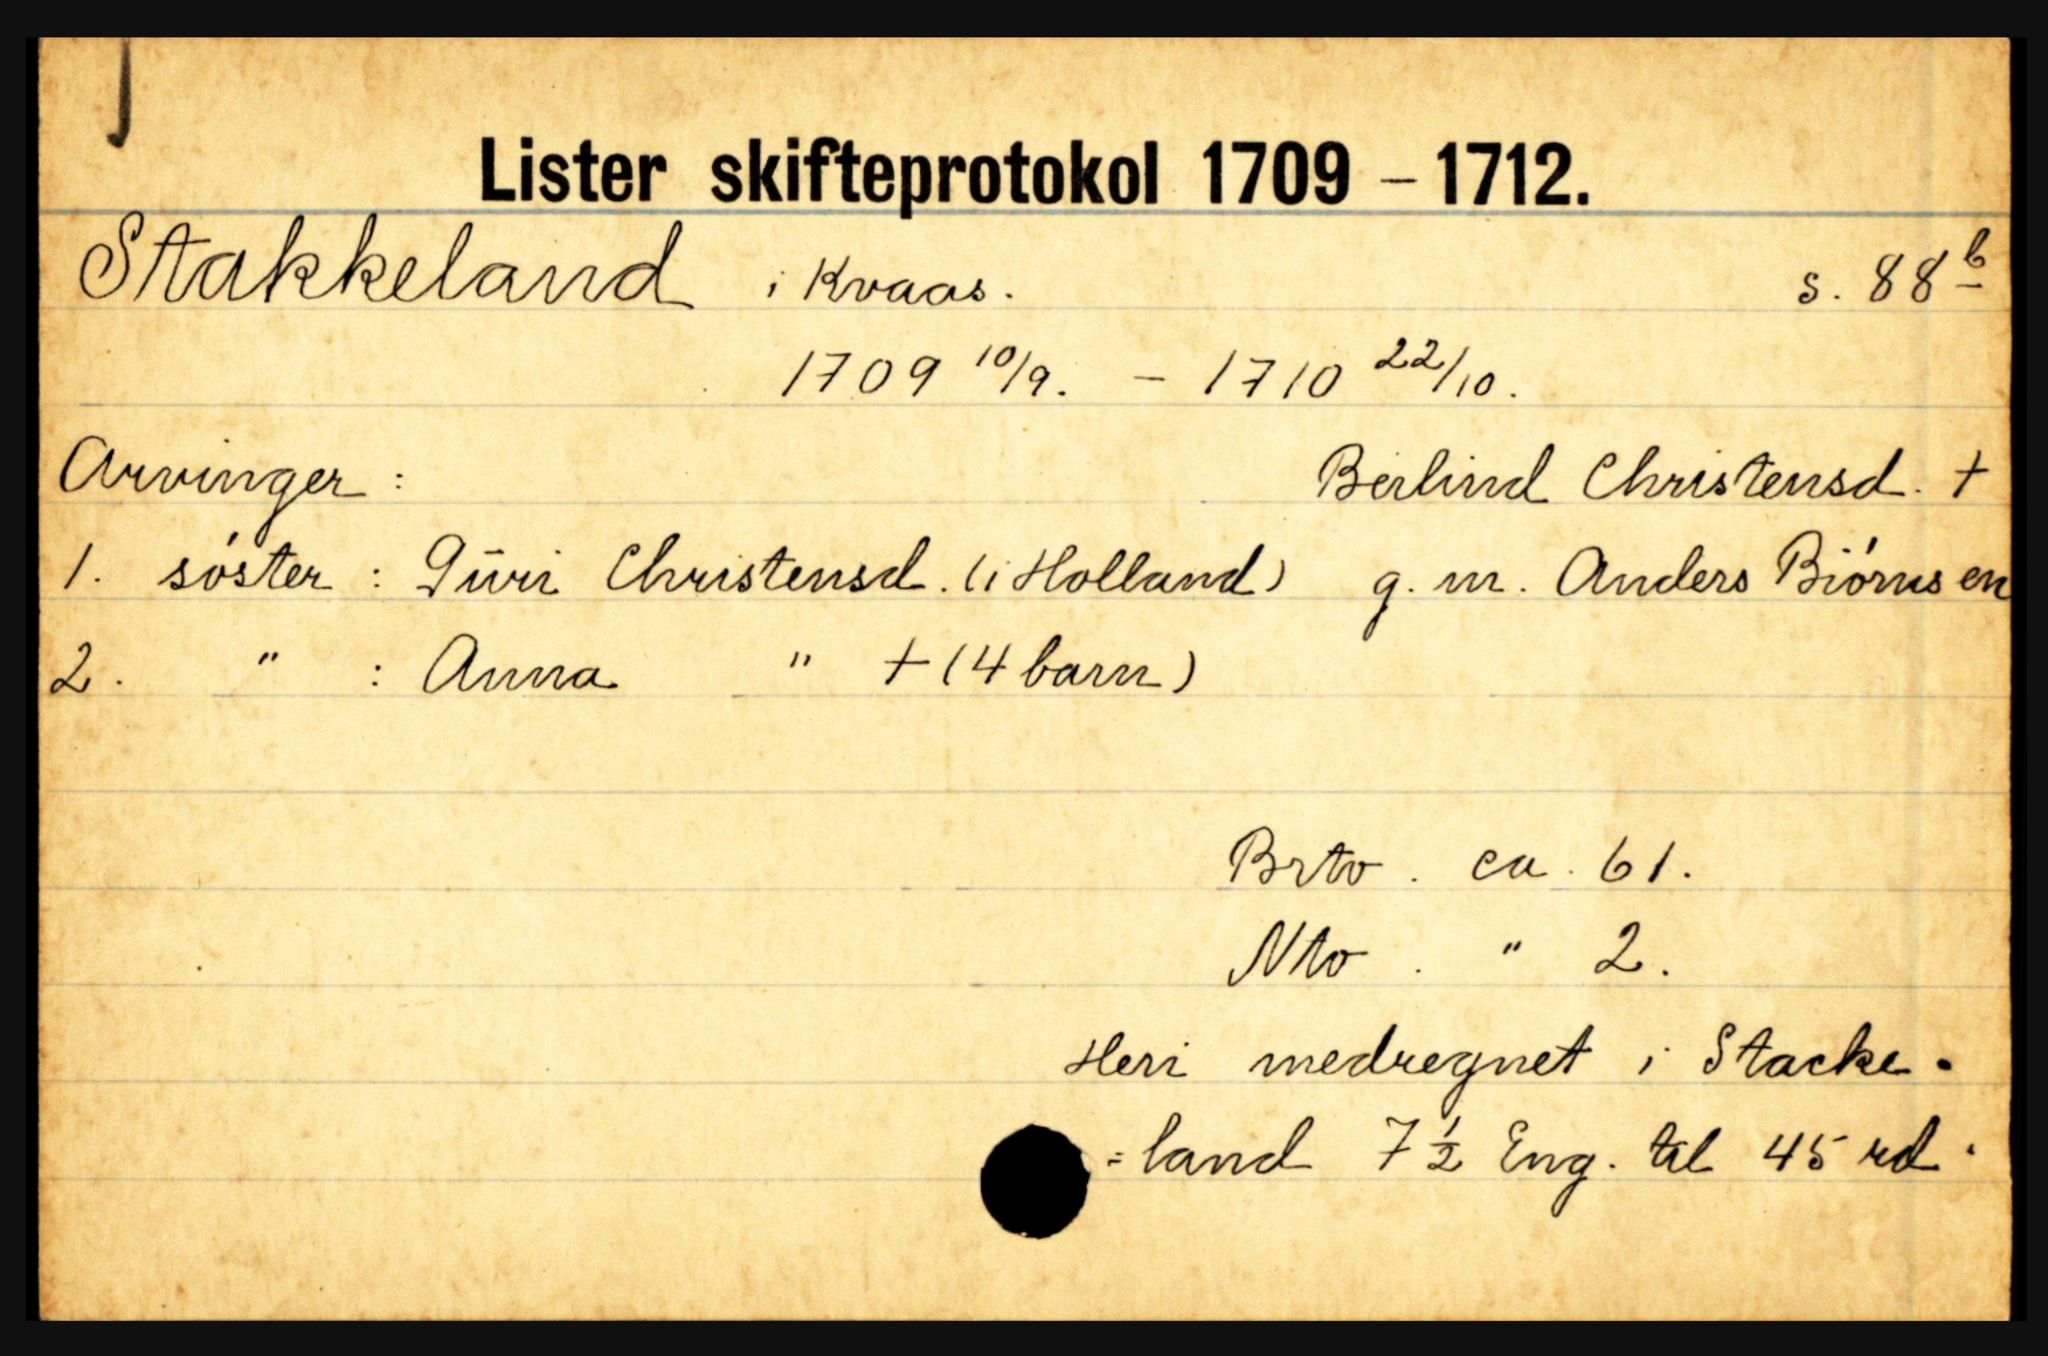 Lister skifteprotokol 1709 – 1712.
Stakkeland i Kvaas. s. 88 b
1709 10/9. – 1710 22/10.
Arvinger : Berlind Christensd. +
1. søster : Gūri Christensd. (i Holland) g. m. Anders Biørnsen
2. " : Anna " + (4 barn)
Brto . ca. 61.
Nto . " 2.
Heri medregnet i Stacke-
=land 7 1/2 Eng. til 45 rd.